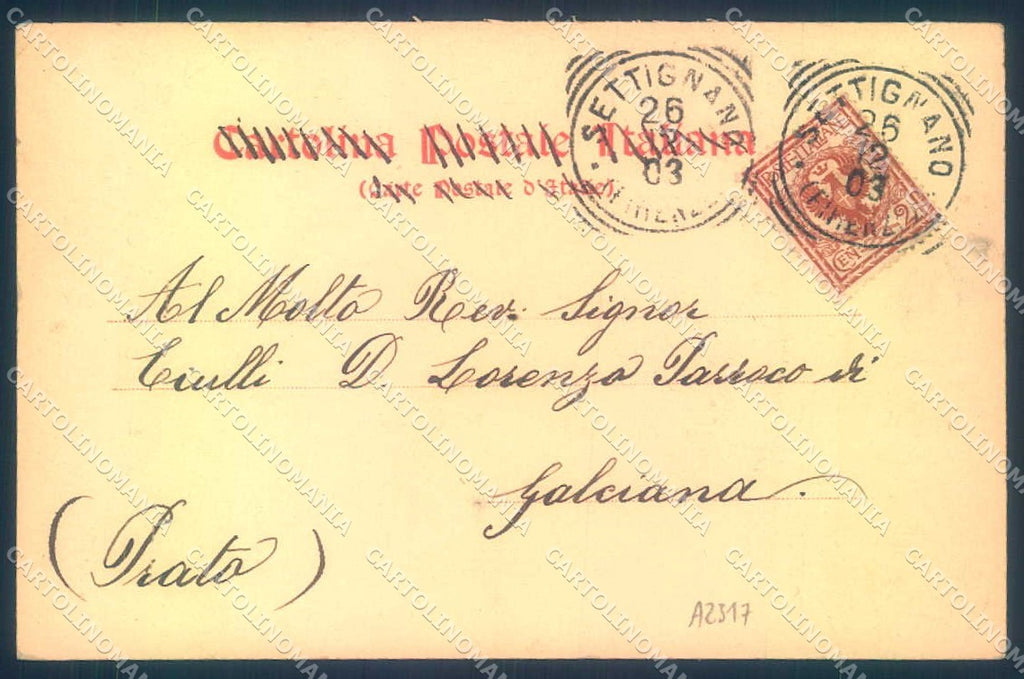 Cartolina Postale Italiana
(Carte Postale d'Italie)
SETTIGNANO
26
12
03
(FIRENZE)
SETTIGNANO
26
12
03
(FIRENZE)
Al Molto Rev. Signor
Ciulli D. Lorenzo Parroco di
Galciana.
(Prato)
A2317
CARTOLINOMANIA